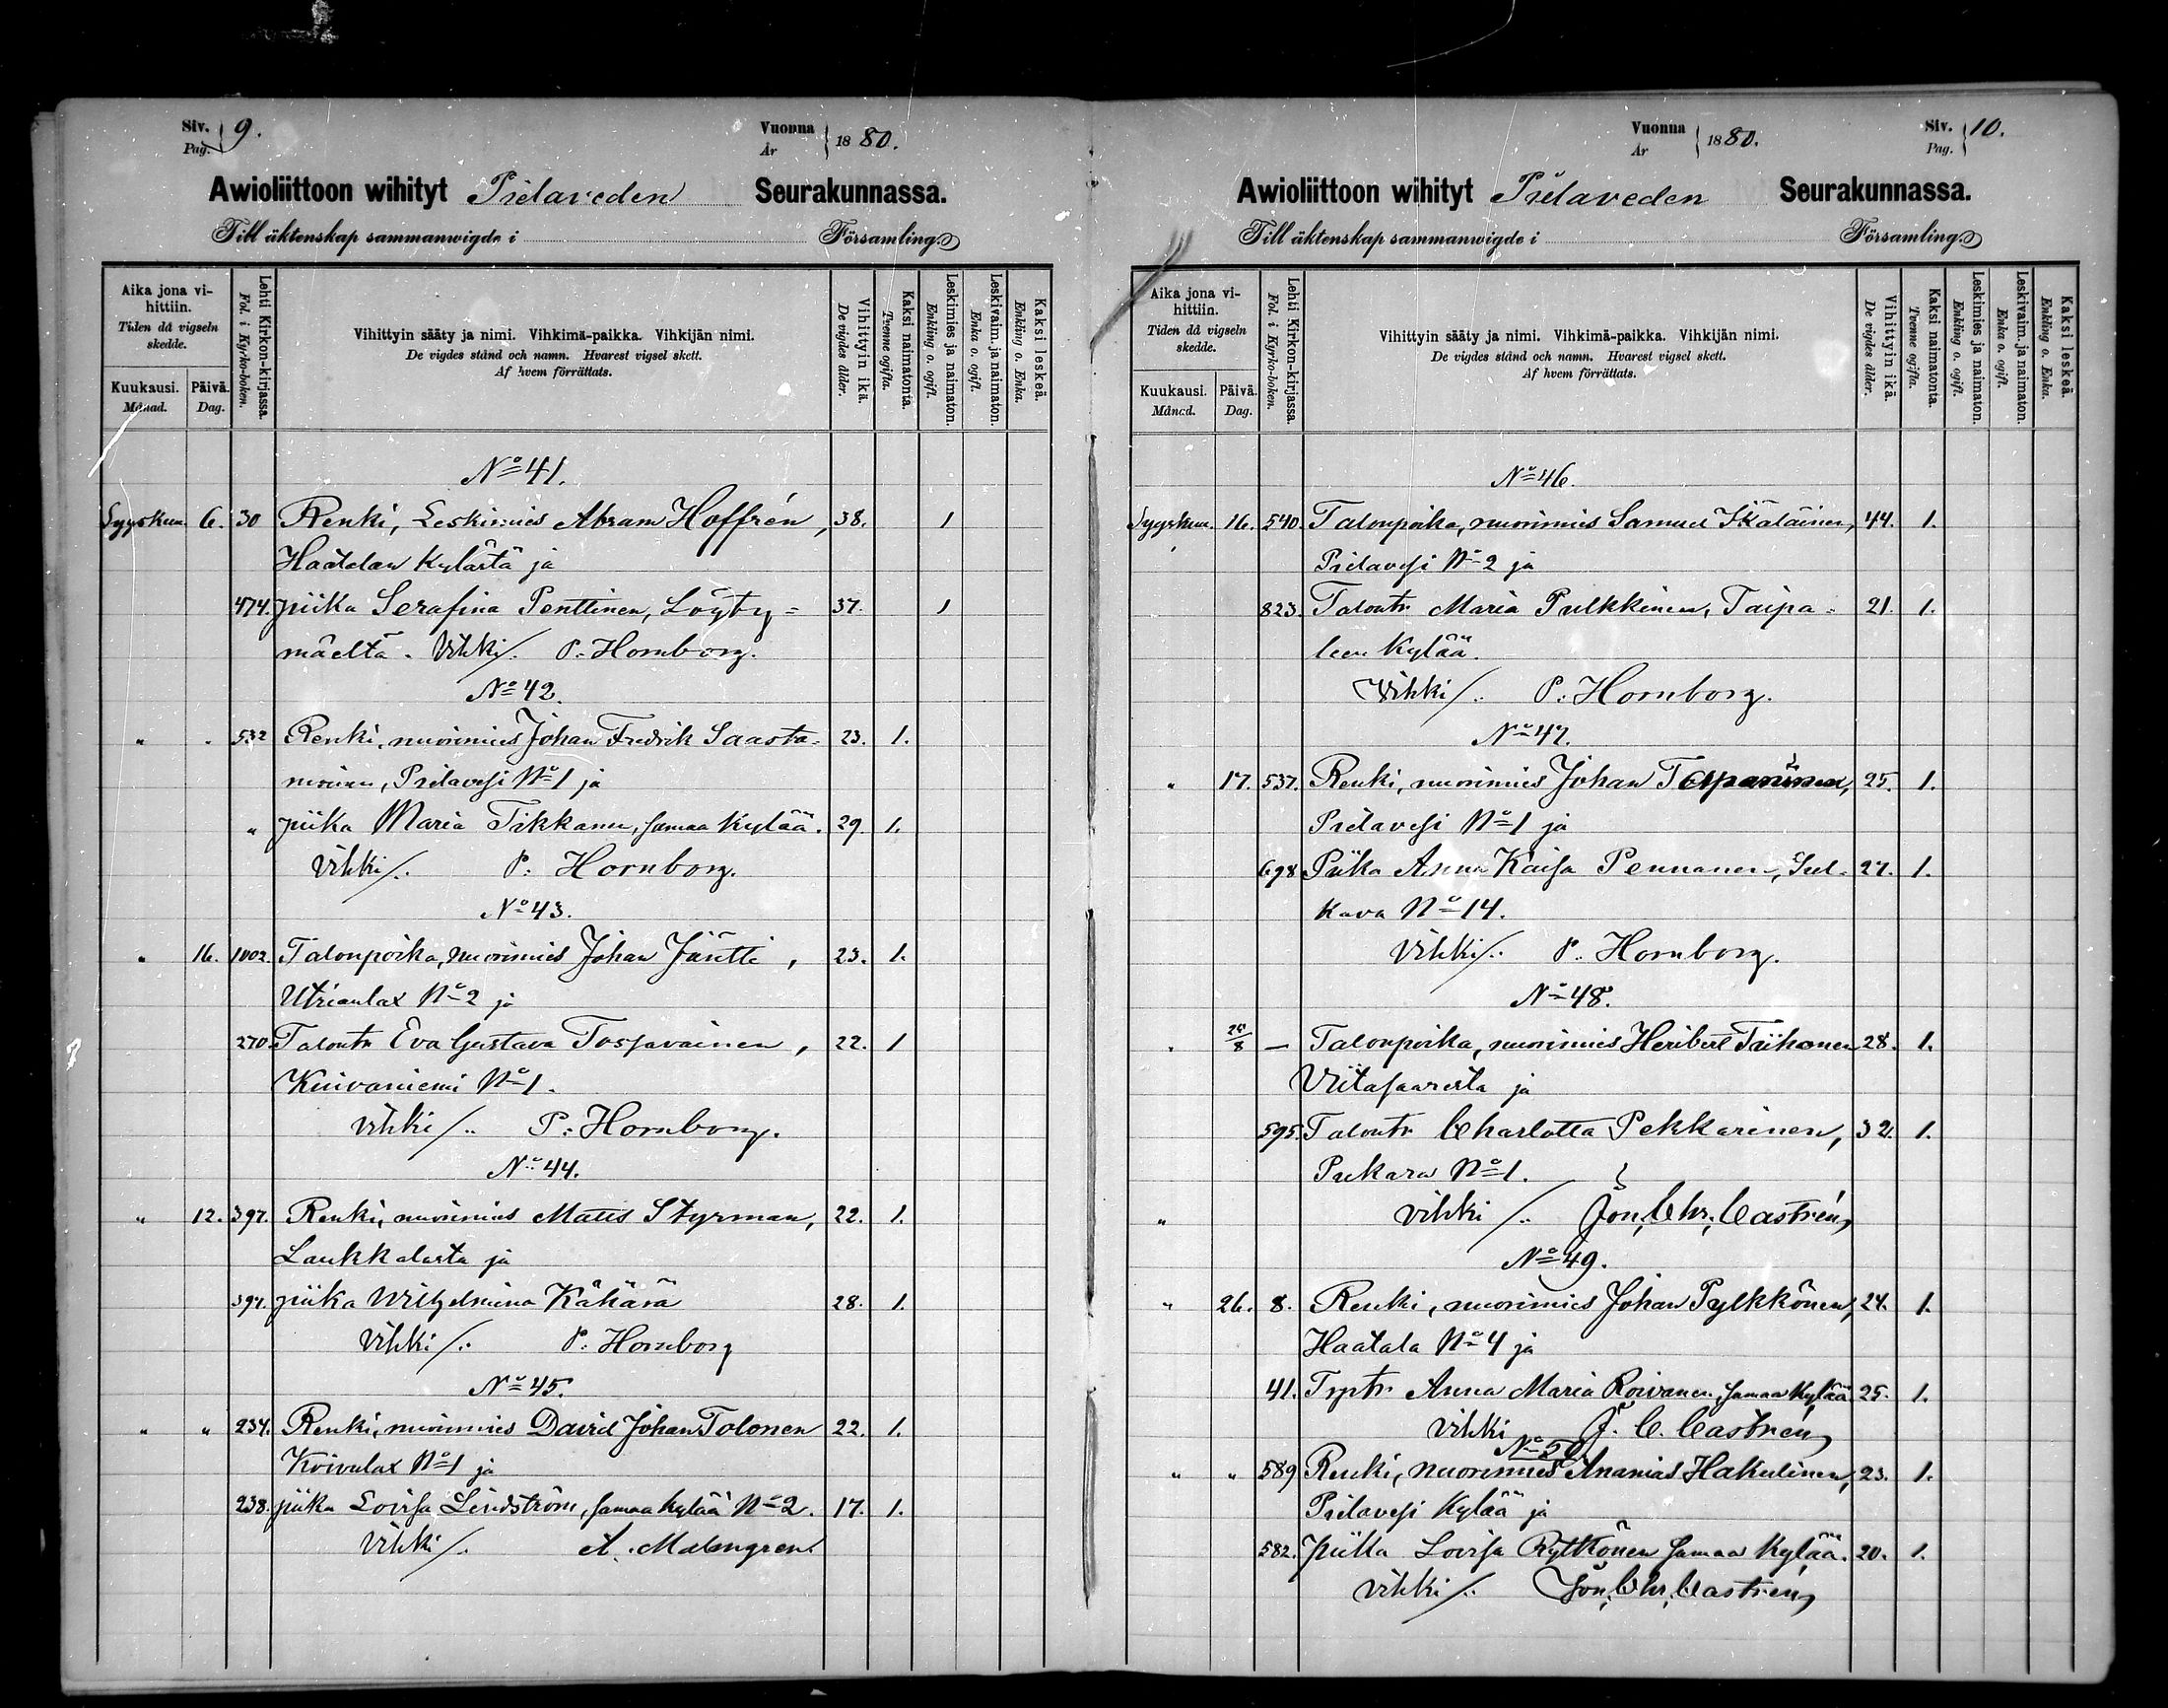 Siv. 9.
Pag.
Vuonna 1880.
År
Awioliittoon wihityt Pielaveden Seurakunnassa.
Till äktenskap sammanwigde i Församling.
Aika jona vihittiin.
Tiden då vigseln skedde.
Kuukausi.
Månad.
Päivä.
Dag.
Lehti Kirkon-kirjassa.
Fol. i Kyrko-boken.
Vihittyin sääty ja nimi. Vihkimä-paikka. Vihkijän nimi.
De vigdes stånd och namn. Hvarest vigsel skett.
Af hvem förrättats.
Vihittyin ikä.
De vigdes ålder.
Kaksi naimatonta.
Tvenne ogifta.
Leskimies ja naimaton.
Enkling o. ogift.
Leskivaim. ja naimaton.
Enka o. ogift.
Kaksi leskeä.
Enkling o. Enka.
No 41.
Syyskuu. 6. 30 Renki, Leskimies Abram Hoffrén, 38. 1
Haatalan kylästä ja
474. piika Serafina Penttinen, Löyty= 37. 1
mäeltä. Vihki/. P. Hornborg.
No 42.
" " 532 Renki, nuorimies Johan Fredrik Saasta= 23. 1.
moinen, Pielavesi No 1 ja
" piika Maria Tikkanen, samaa kylää. 29. 1.
Vihki/.. P. Hornborg.
No 43.
" 16. 1002. Talonpoika, nuorimies Johan Jäntti, 23. 1.
Utrianlax No 2 ja
270. Talontr Eva Gustava Tossavainen, 22. 1
Kuivaniemi No 1.
vihki/.. P. Hornborg.
No 44.
" 12. 397. Renki, nuorimies Matts Styrman, 22. 1.
Laukkalasta ja
397. piika Wilhelmina Kähärä 28. 1.
Vihki/.. P. Hornborg
No 45.
" " 234. Renki, nuorimies David Johan Tolonen 22. 1.
Koivulax No 1 ja
238. piika Lovisa Lindström, samaa kylää No 2. 17. 1.
Vihki/. A. Malmgren.
Vuonna 1880.
År
Siv. 10.
Pag.
Awioliittoon wihityt Pielaveden Seurakunnassa.
Till äktenskap sammanwigde i Församling.
Aika jona vihittiin.
Tiden då vigseln skedde.
Kuukausi.
Månad.
Päivä.
Dag.
Lehti Kirkon-kirjassa.
Fol. i Kyrko-boken.
Vihittyin sääty ja nimi. Vihkimä-paikka. Vihkijän nimi.
De vigdes stånd och namn. Hvarest vigsel skett.
Af hvem förrättats.
Vihittyin ikä.
De vigdes ålder.
Kaksi naimatonta.
Tvenne ogifta.
Leskimies ja naimaton.
Enkling o. ogift.
Leskivaim. ja naimaton.
Enka o. ogift.
Kaksi leskeä.
Enkling o. Enka.
No 46.
Syyskuu. 16. 540. Talonpoika, nuorimies Samuel Ikäläinen, 44. 1.
Pielavesi No 2 ja
823. Talontr Maria Pulkkinen, Taipa= 21. 1.
leen kylää.
Vihki/.. P. Hornborg.
No 47.
" 17. 537. Renki, nuorimies Johan Tapaninen, 25. 1.
Pielavesi No 1 ja
698 Piika Anna Kaisa Pennanen, Sul= 27. 1.
kava No 14.
Vihki/.. P. Hornborg.
No 48.
" 8 — Talonpoika, nuorimies Heribert Tiihonen 28. 1.
Viitasaaresta ja
595. Talontr Charlotta Pekkarinen, 32. 1.
Pukara No 1.
" vihki/.. Jon. Chr. Castrén
No 49.
" 26. 8. Renki, nuorimies Johan Pylkkönen, 24. 1.
Haatala No 4 ja
41. Tyttr Anna Maria Roivanen, samaa kylää 25. 1.
vihki J. C. Castrén
No 50.
" " 589 Renki, nuorimies Ananias Hakulinen, 23. 1.
Pielavesi kylää ja
582. piika Lovisa Rytkönen samaa kylää. 20. 1.
vihki/.. Jon. Chr. Castrén